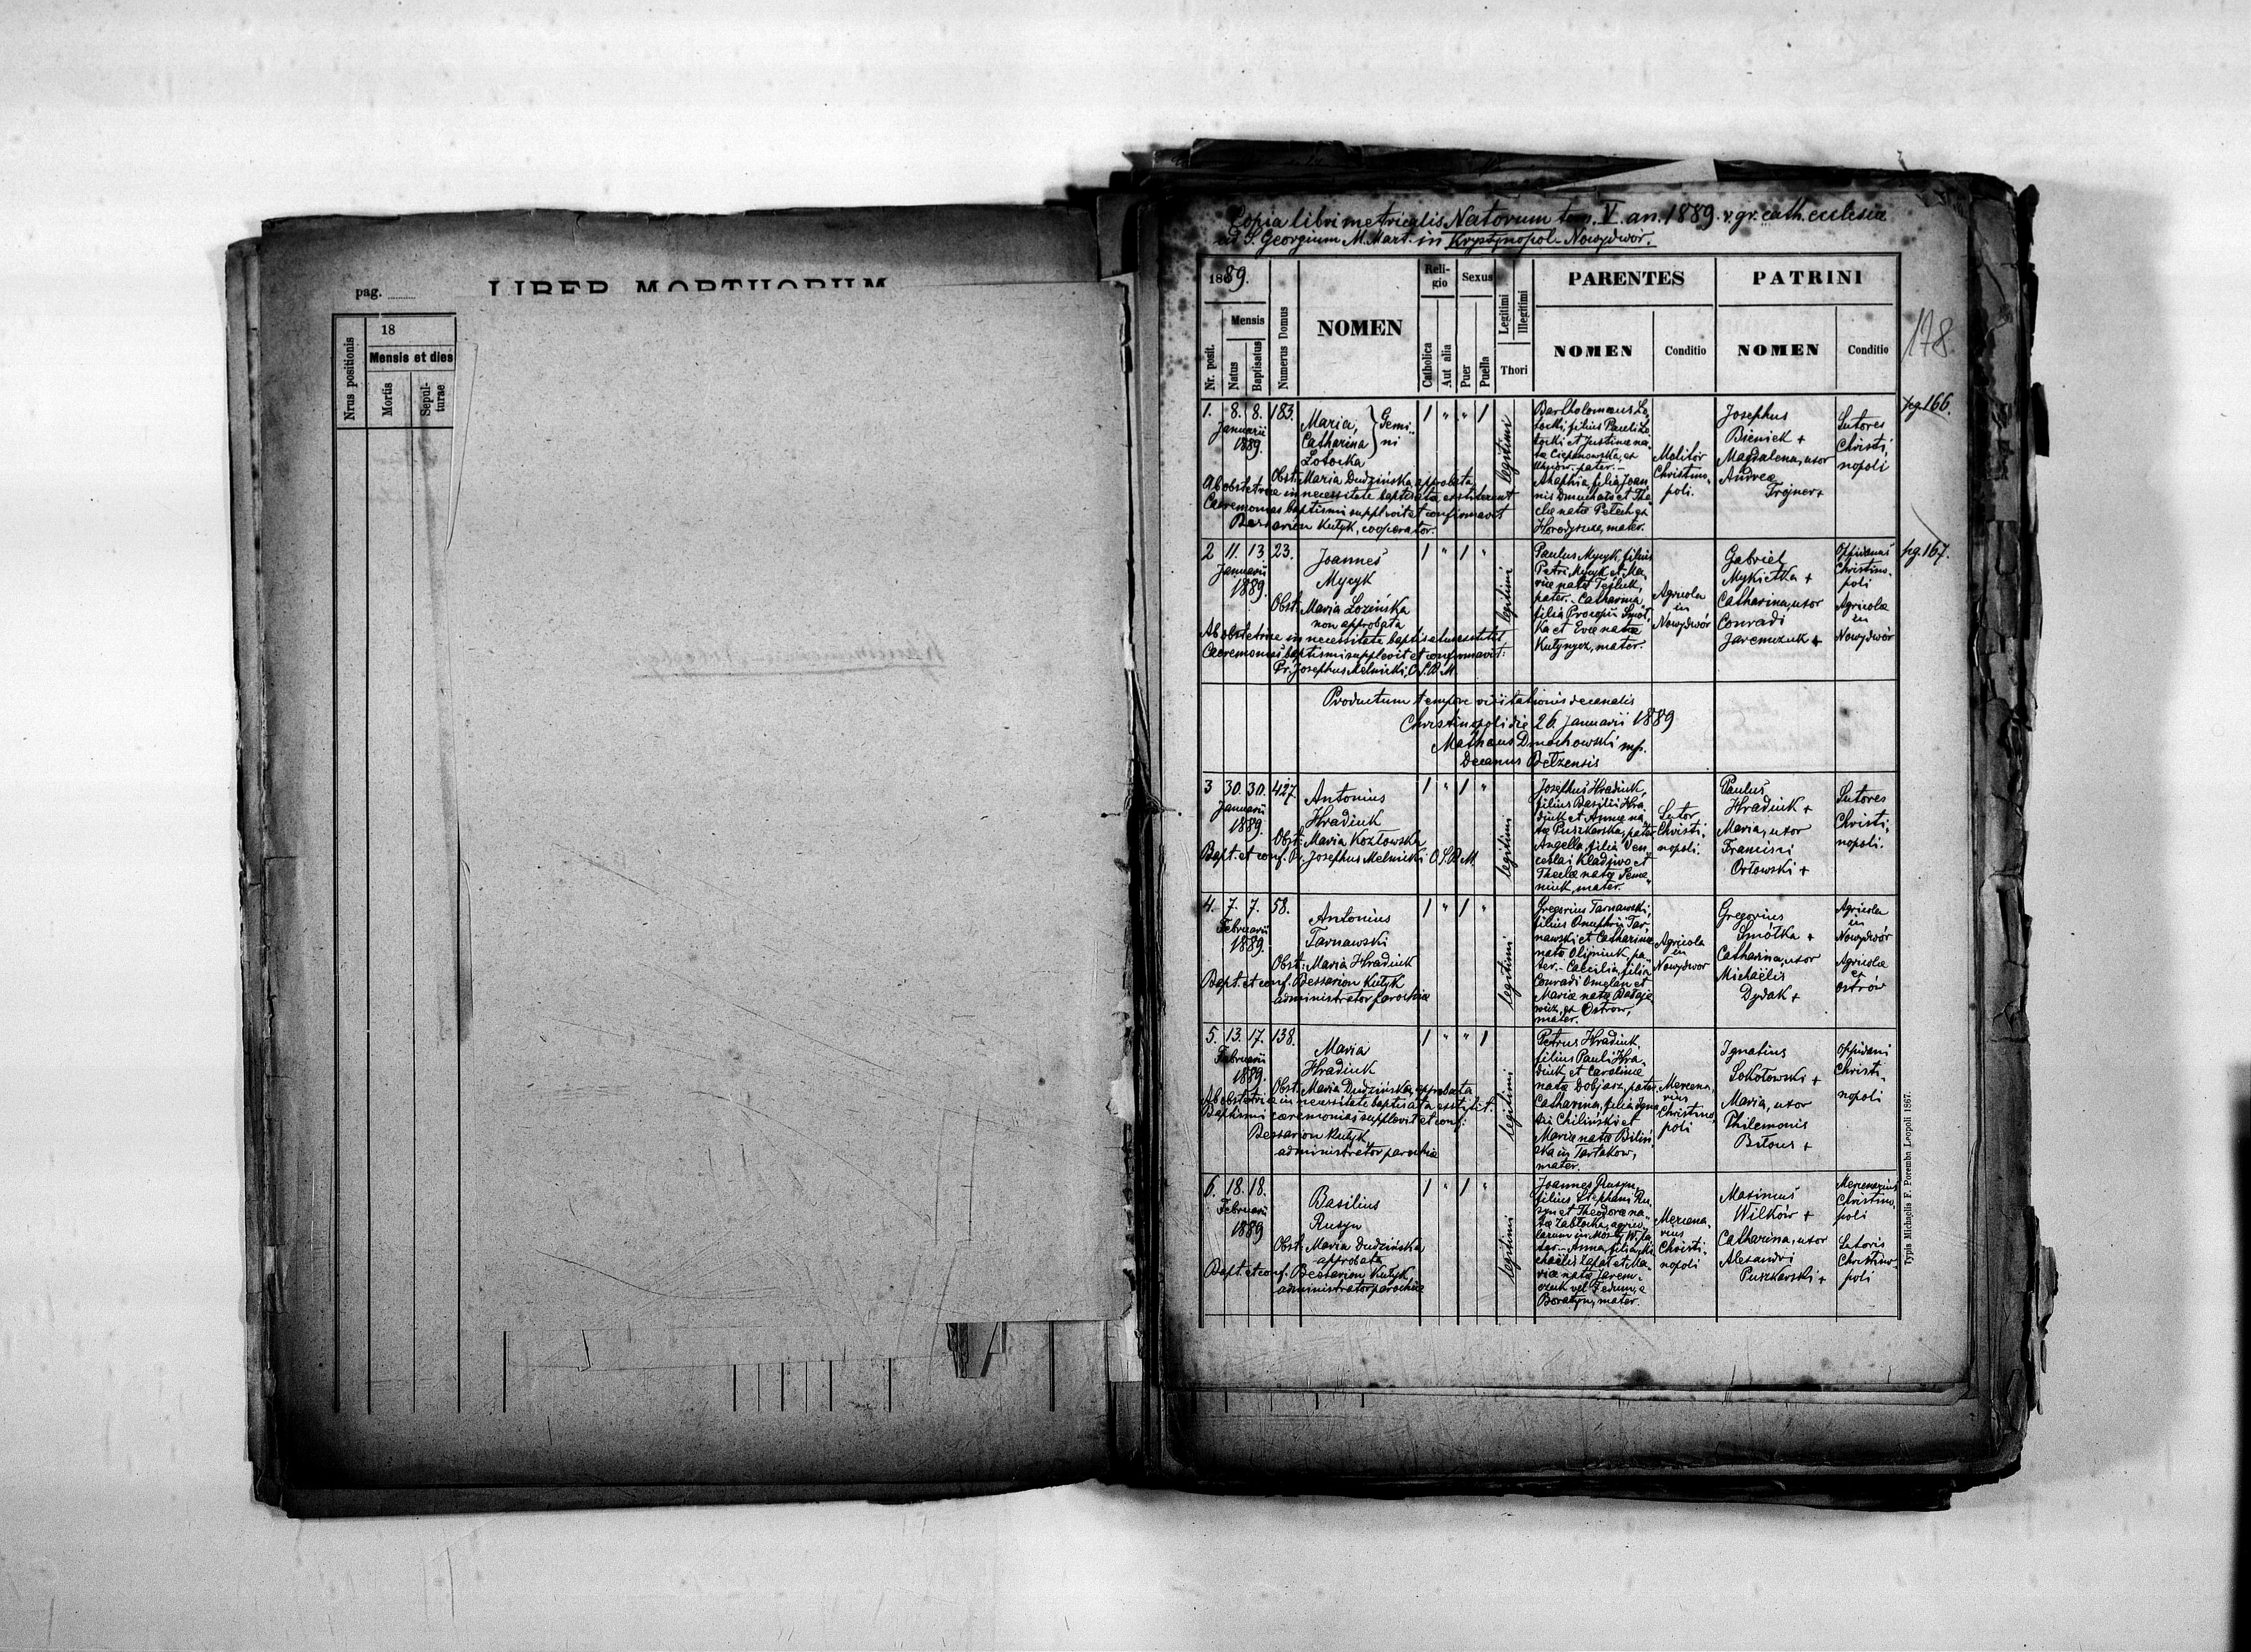 pag.
LIBER MORTUORUM
Nrus positionis
18
Mensis et dies
Mortis
Sepul-
turae
Copia libri metricalis Natorum tom. V. an. 1889. r. gr. cath. ecclesiæ
ad S. Georgium M. Mart. in Krystynopol-Nowydwór.
178.
1889.
Nr. posit.
Mensis
Natus
Baptisatus
Numerus Domus
NOMEN
Reli-
gio
Catholica
Aut alia
Sexus
Puer
Puella
Legitimi
Illegitimi
Thori
PARENTES
NOMEN
Conditio
PATRINI
NOMEN
Conditio
1. 8. 8. 183.
Januarii
1889.
Maria,
Catharina
Gemi-
ni
Łotocka
Obst. Maria Dudzińska approbata
Ab obstetrice in necessitate baptisatæ exstiterunt
Caeremonias baptismi supplevit et confirmavit
Bessarion Kutyk, cooperator.
1 " " 1
legitimi
Bartholomæus Ło-
tocki, filius Pauli Ło-
tocki et Justinæ na-
tæ
pater.-
Agaphia, filia Joan-
nis et The-
clæ natæ Petech ex
mater.
Molitor
Christino-
poli.
Josephus
Bieniek +
Magdalena, uxor
Andreæ
Trojner +
Sutores
Christi-
nopoli
pg. 166.
2 11. 13. 23.
Januarii
1889.
Joannes
Mycyk
Obst. Maria Łozińska
non approbata
Ab obstetrice in necessitate baptisatus exstitit,
Caeremonias baptismi supplevit et confirmavit:
Pr. Josephus Melnicki, O. S. B. M.
1 " 1 "
legitimi
Paulus Mycyk, filius
Petri Mycyk et Ma-
riæ natæ Tesluk,
pater.- Catharina
filia Procopii Smół-
ka et Evæ natæ
Kutynycz, mater.
Agricola
in
Nowydwór
Gabriel
Mykietka +
Catharina, uxor
Conradi
Jaremczuk +
Oppidanus
Christino-
poli
Agricolæ
in
Nowydwór
pg. 167.
Productum tempore visitationis decanalis
Christinopoli die 26 Januarii 1889
Mathæus Dmochowski mp.
Decanus Bełzensis
3 30. 30. 427.
Januarii
1889.
Antonius
Hradiuk
Obst. Maria Kozłowska
Bapt. et conf. Pr. Josephus Melnicki O. S. B. M.
1 " 1 "
legitimi
Josephus Hradiuk,
filius Basilii Hra-
diuk et Annæ na-
tæ Puszkarska, pater
Angella, filia Ven-
ceslai Kladywo et
Theclæ natæ Seme-
niuk, mater.
Sutor
Christi-
nopoli.
Paulus
Hradiuk +
Maria, uxor
Francisci
Orłowski +
Sutores
Christi-
nopoli.
4. 7. 7. 58.
Februarii
1889.
Antonius
Tarnawski
Obst.: Maria Hradiuk
Bapt. et conf. Bessarion Kutyk
administrator parochiæ
1 " 1 "
legitimi
Gregorius Tarnawski,
filius Onuphrii Tar-
nawski et Catharinæ
natæ Olijniuk, pa-
ter.- Caecilia, filia
Conradi Omelan et
Mariæ natæ
ex Ostrow,
mater.
Agricola
in
Nowydwor
Gregorius
Smółka +
Catharina, uxor
Michaëlis
Dydak +
Agricola
in
Nowydwór
Agricolæ
ex
Ostrów
5. 13. 17. 138.
Februarii
1889.
Maria
Hradiuk
Obst. Maria Dudzińska, approbata
Ab obstetrice in necessitate baptisata exstitit.
Baptismi caeremonias supplevit et conf:
Bessarion Kutyk
administrator parochiæ
1 " " 1
legitimi
Petrus Hradiuk,
filius Pauli Hra-
diuk et Carolinæ
natæ Dobjasz, pater
Catharina, filia Igna-
tii Chiliński et
Mariæ natæ Biliń-
ska in Tartakow,
mater.
Mercena-
rius
Christino-
poli
Ignatius
Sokołowski +
Maria, uxor
Philemonis
Biłous +
Oppidani
Christi-
nopoli
6. 18. 18.
Februarii
1889
Basilius
Rusyn
Obst. Maria Dudzińska
approbata
Bapt. et conf. Bessarion Kutyk,
administrator parochiæ
1 " 1 "
legitimi
Joannes Rusyn,
filius Stephani Ru-
syn et Theodoræ na-
tæ Zabłocka, agrico-
larum in Mosty W. pa-
ter.- Anna, filia Mi-
chaëlis Zapat et Ma-
riæ natæ Jarem-
czuk vel Fedum, e
Boratyn, mater.
Mercena-
rius
Christi-
nopoli
Maximus
Wilków +
Catharina, uxor
Alexandri
Puszkarski +
Mercenarius
Christino-
poli
Sutoris
Christino-
poli
Typis Michaelis F. Poremba Leopoli 1867.